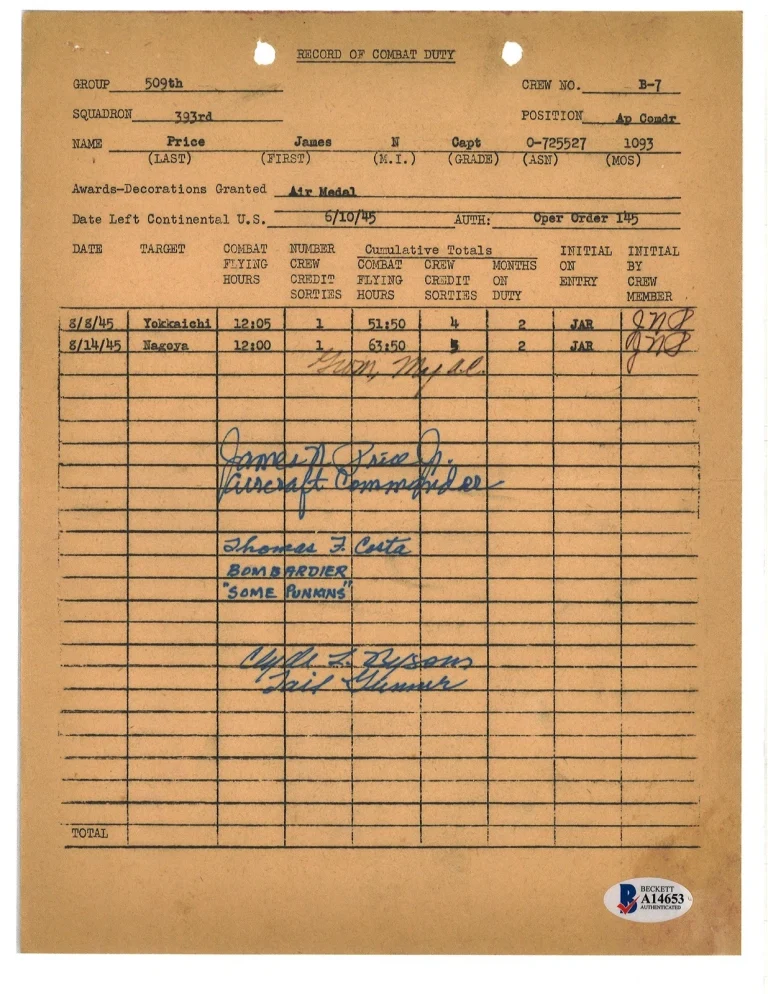 RECORD OF COMBAT DUTY
GROUP 509th CREW NO. B-7
SQUADRON 393rd POSITION Ap Comdr
NAME Price James N Capt O-725527 1093
(LAST) (FIRST) (M.I.) (GRADE) (ASN) (MOS)
Awards-Decorations Granted Air Medal
Date Left Continental U.S. 6/10/45 AUTH: Oper Order 145
DATE TARGET COMBAT NUMBER Cumulative Totals INITIAL INITIAL
FLYING CREW COMBAT CREW MONTHS ON BY
HOURS CREDIT FLYING CREDIT ON ENTRY CREW
SORTIES HOURS SORTIES DUTY MEMBER
8/8/45 Yokkaichi 12:05 1 51:50 4 2 JAR JNP
8/14/45 Nagoya 12:00 1 63:50 5 2 JAR JNP
James N Price Jr.
Aircraft Commander
Thomas F. Costa
BOMBARDIER
"SOME PUNKINS"
Clyde L. Bysom
Tail Gunner
TOTAL
BECKETT
A14653
AUTHENTICATED